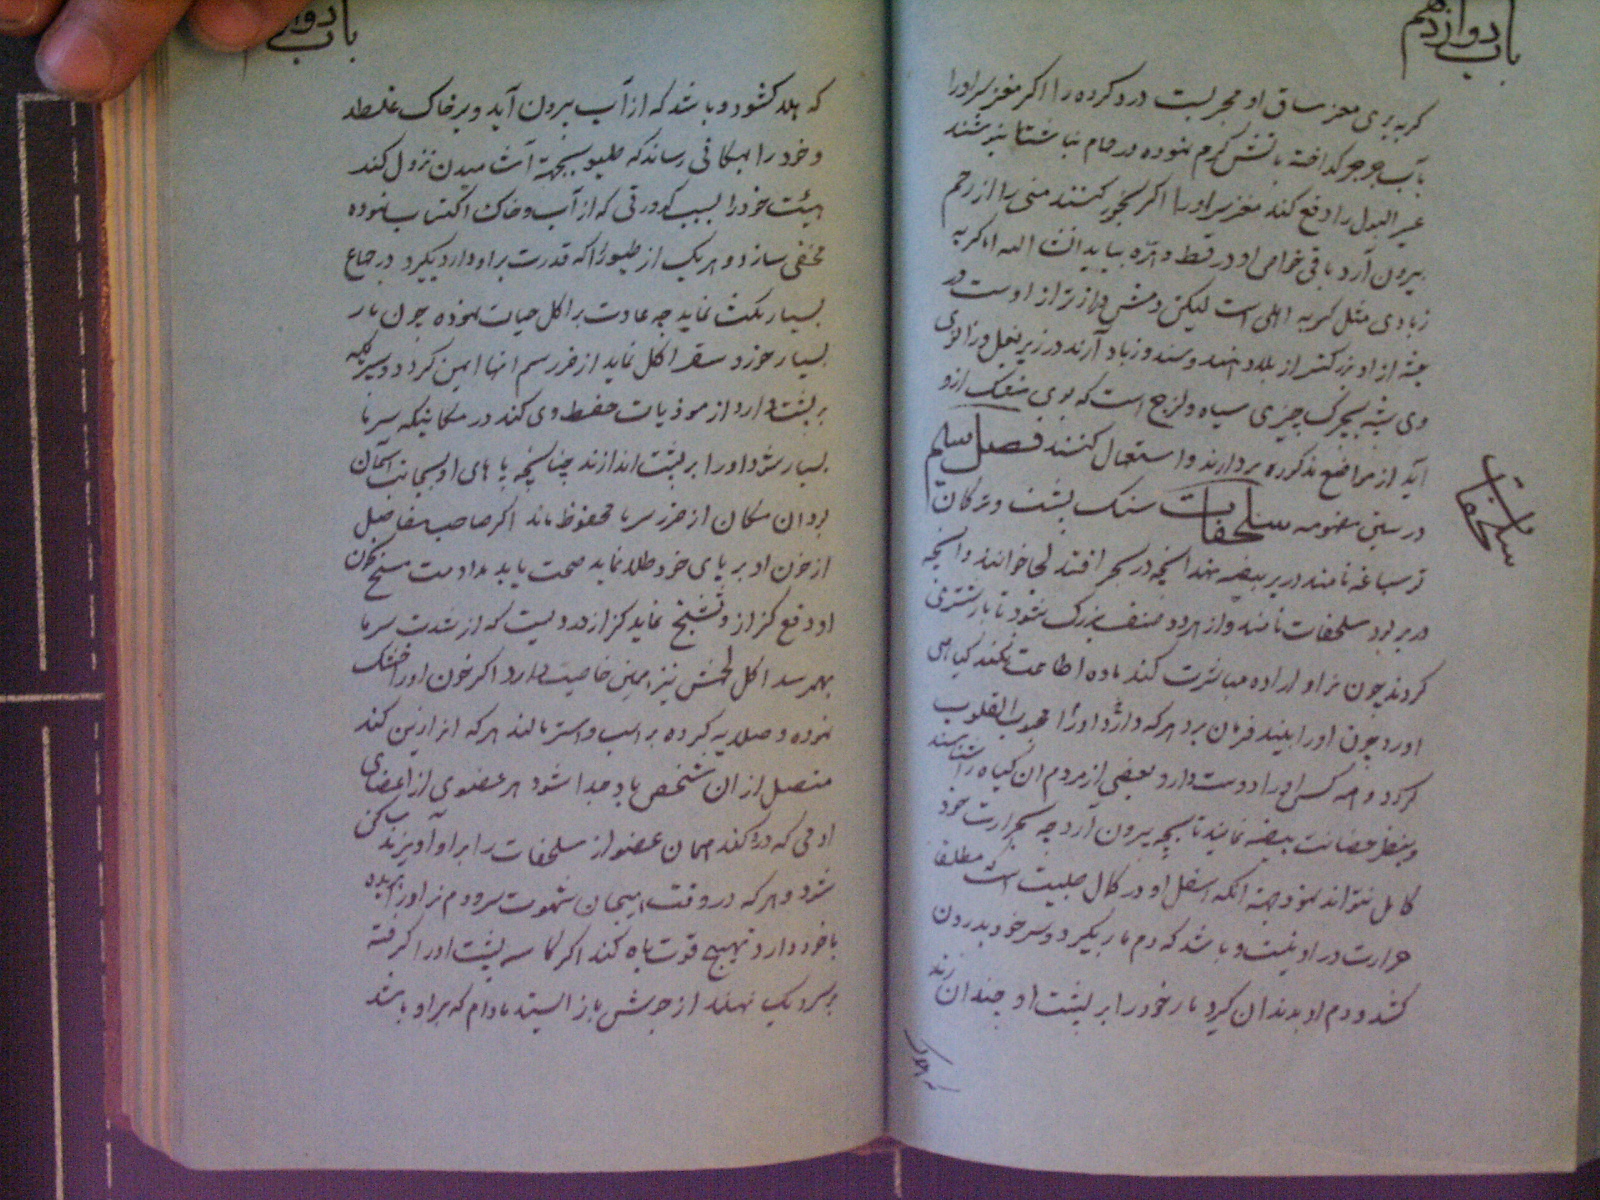 باب دوازدهم
گربه بری مغز ساق او مجربست درد گرده را اگر مغز سر او را
بآب جرجر گداخته بآتش گرم نموده در حمام ناشتا بنوشند
عسر البول را دفع کند مغز سر او را اگر بخور کنند منی را از رحم
بیرون آرد باقی خواص او در قط و هره بیاید انشا الله اما گربه
زبادی مثل گربه اهلی است لیکن دمش درازتر از اوست و در
جثه از او بزرگتر از بلاد هند و سند و زباد آرند در زیر بغل و رانهای
وی شبه بچرک چیزی سیاه و لزج است که بوی مشک ازو
آید از مواضع مذکوره بردارند و استعمال کنند فصل سیم
در سین مضمومه سلحفات سنک پشت و ترکان
ترسباغه نامند در بر بیضه نهد آنچه در بحر افتد لجا خوانند و آنچه
در بر بود سلحفات نامند و از هر دو صنف بزرک شود تا بار شتری
کردند چون نر او اراده مباشرت کند ماده اطاعت نکند کیاهی
آورد چون او را بیند فرمان برد هر که دارد او را محبوب القلوب
کردد و همه کس او را دوست دارد بعضی از مردم آن کیاه را شناسند
و بنظر حضانت بیضه نمایند تا بچه بیرون آرد چه بحرارت خود
کامل نتواند نمود جهة آنکه اسفل او در کمال صلبیت است که مطلقا
حرارت در او نیست و باشد که دم مار بگیرد و سر خود بدرون
کشد و دم او بدندان گیرد مار خود را بر پشت او چندان زند
سلحفات
که هلاک
باب دوازدهم
که هلد کشود و باشد که از آب بیرون آید و بر خاک غلطد
و خود را بمکانی رساند که طیور بجهة آشامیدن نزول کند
هیئت خود را بسبب کدورتی که از آب و خاک اکتساب نموده
مخفی سازد و هر یک از طیور را که قدرت بر او دارد بگیرد در جماع
بسیار مکث نماید چه عادت بر اکل حیات نموده چون مار
بسیار خورد سعتر اکل نماید از ضرر سم آنها ایمن کردد و سپر که
بر پشت دارد از موذیات حفظ وی کند در مکانیکه سرما
بسیار شود او را بر پشت اندازند چنانچه پا های او بجانب آسمان
بود آن مکان از ضرر سرما محفوظ ماند اگر صاحب مفاصل
از خون او بر پای خود طلا نماید صحت یابد مداومت مسح بخون
او دفع کزاز و تشنج نماید کزاز دردیست که از شدت سرما
بهمرسد اکل لحمش نیز همین خاصیت دارد اگر خون او را خشک
نموده و صلایه کرده بر اسب و استر مالند هر که از ازین کند
متصل از آن شخص باد جدا شود هر عضوی از اعضای
آدمی که درد کند همان عضو از سلحفات را بر او آویزند ساکن
شود و هر که در وقت هیجان شهوت سر و دم نر او را بریده
با خود دارد تهییج قوت باه کند اگر کاسه پشت او را گرفته
بر سر دیک نهند از جوشش باز ایستد مادام که بر او باشد